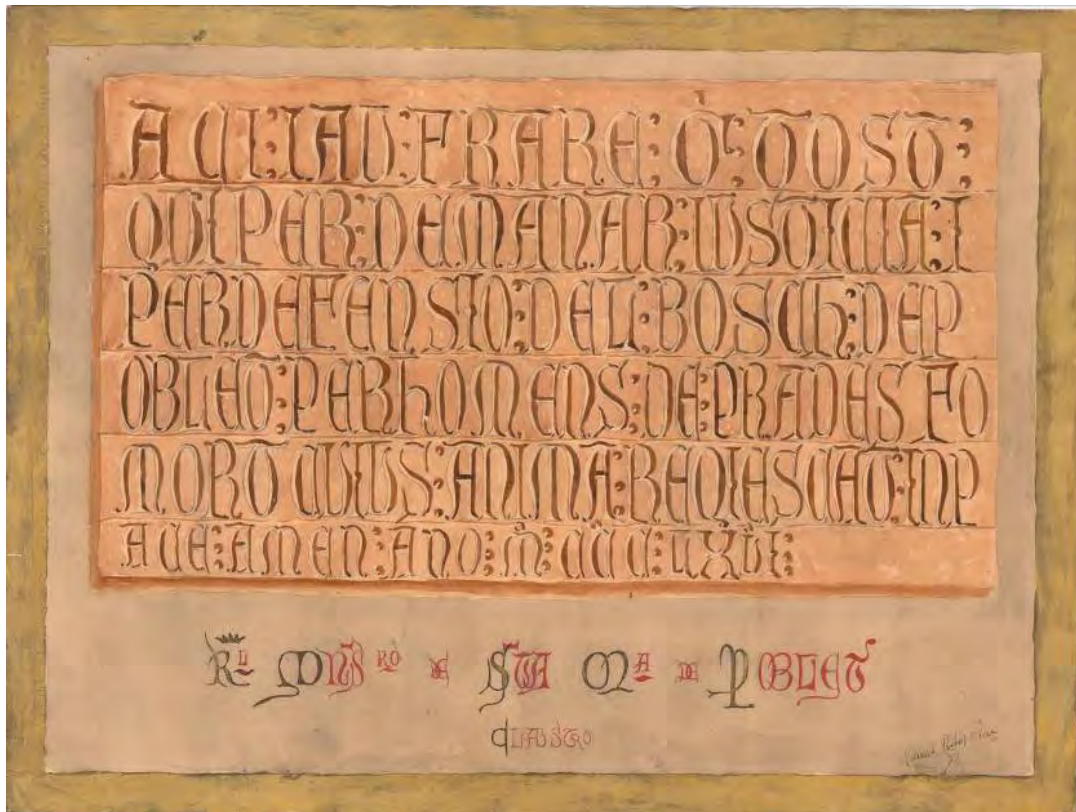 ACI : IAU : FRARE : G : TOST :
QUI PER : DEMANAR : IUSTICIA : I
PER DEFENSIO : DEL : BOSCH : DE P
OBLET : PER HOMENS : DE : PRADES FO
MORT CUIUS : ANIMA : REQIESCAT : IN P
ACE : AMEN : ANO : M : CCC : LXVI :
RL MONSRO DE STA MA DE POBLET
CLAUSTRO